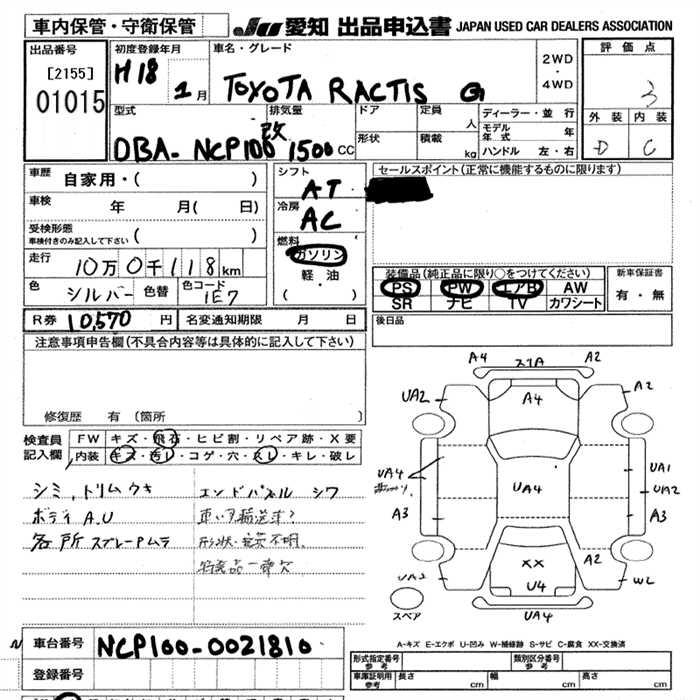 車内保管・守衛保管
JU 愛知 出品申込書 JAPAN USED CAR DEALERS ASSOCIATION
出品番号
[2155]
01015
初度登録年月
H18
1月
車名・グレード
TOYOTA RACTIS G
2WD
・
4WD
評価点
3
外装 内装
D C
型式
DBA-NCP100 改
排気量
1500 cc
ドア
定員
人
形状
積載
kg
ディーラー・並行
モデル年式 年
ハンドル 左・右
車歴 自家用・( )
車検 年 月( 日)
受検形態
車検付きのみ記入して下さい ( )
走行 10万0千118km
色 シルバー 色替 色コード 1E7
シフト
AT
冷房
AC
燃料
ガソリン
・
軽・油
( )
セールスポイント(正常に機能するものに限ります)
装備品(純正品に限り○をつけてください)
PS PW エアB AW
SR ナビ TV カワシート
新車保証書
有・無
R券 10,570 円 名変通知期限 月 日
後日品
注意事項申告欄(不具合内容等は具体的に記入して下さい)
修復歴 有 〔箇所 〕
検査員記入欄
FW キズ・飛石・ヒビ割・リペア跡・X要
内装 キズ・汚レ・コゲ・穴・スレ・キレ・破レ
シミ,トリムウキ
ボディ A.U
各所スプレームラ
エンドパネル シワ
車いす輸送車?
形状・定員不明.
A4 スリA A2
UA2 A4 A2
UA4 UA4 UA1
UA2
A3 A3
UA2 XX A2 W2
U4
UA4
スペア
A-キズ E-エクボ U-凹み W-補修跡 S-サビ C-腐食 XX-交換済
車台番号 NCP100-0021810
登録番号
形式指定番号
参考
類別区分番号
参考
車庫証明用
参考
長さ cm 幅 cm 高さ cm